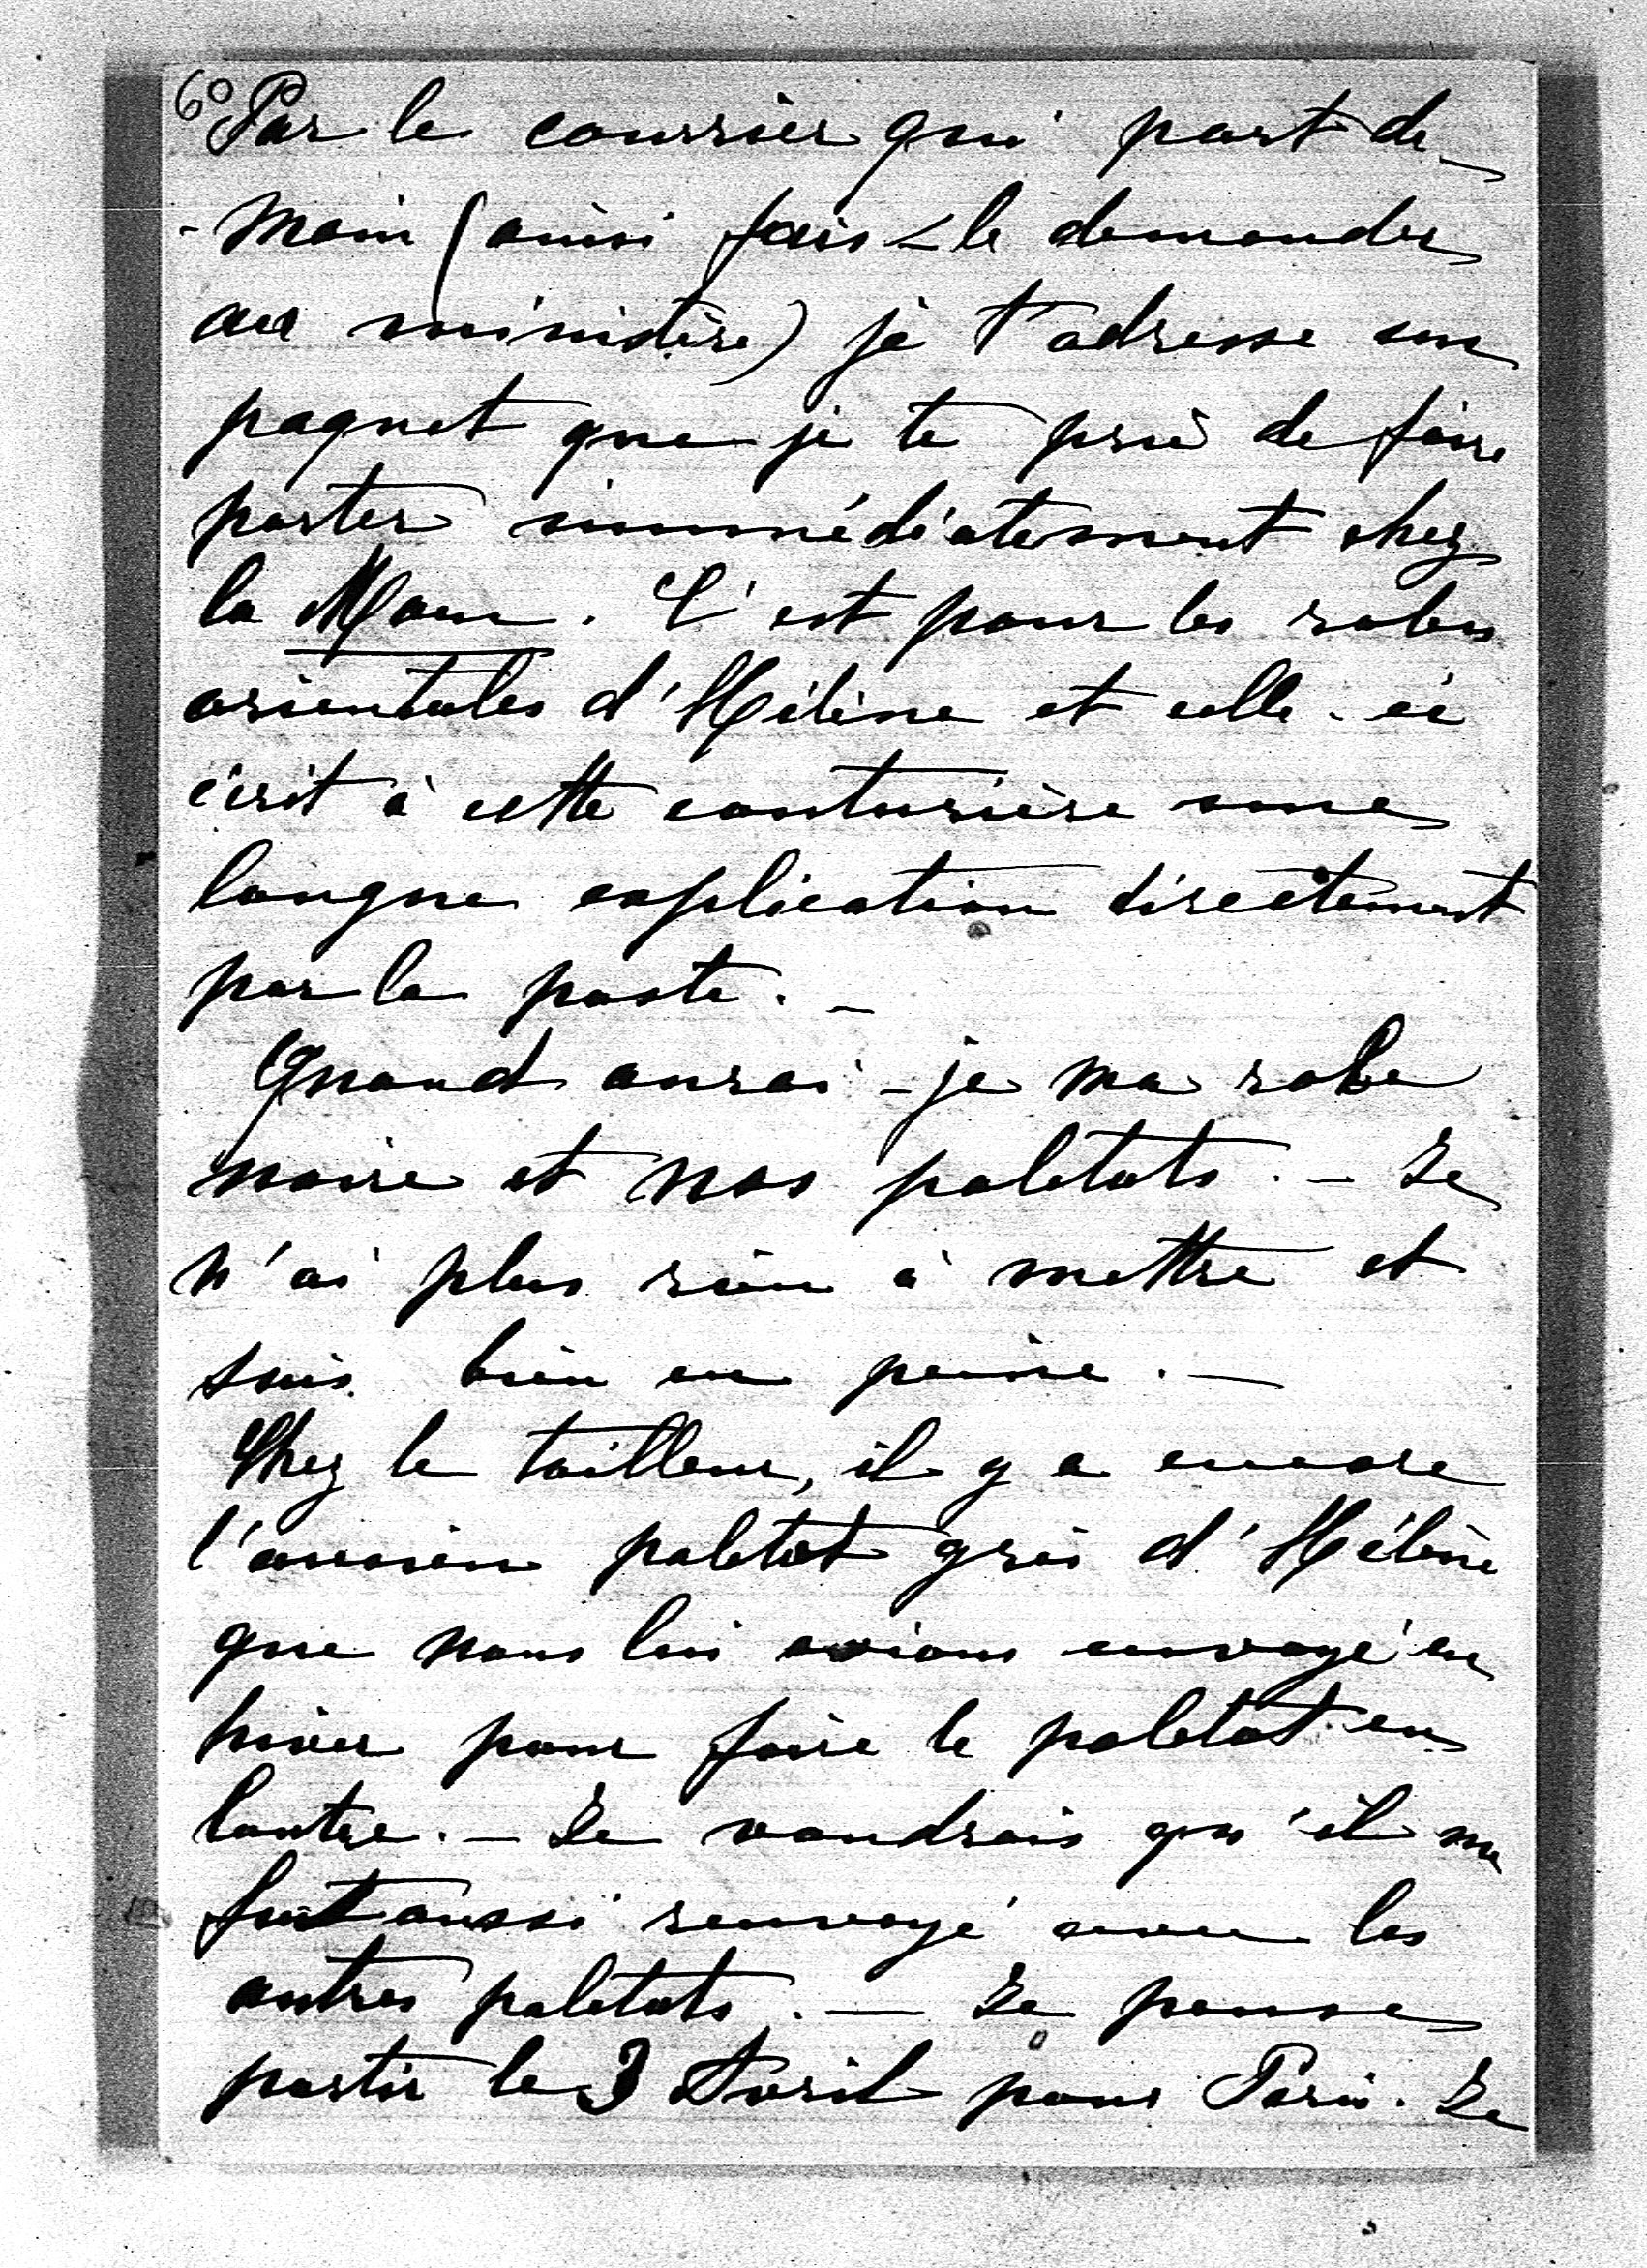 6º Par le courrier qui part de-
-main (ainsi fais-le demander
au ministère) je t'adresse un
paquet que je te prie de faire
porter immédiatement chez
la Maur. C'est pour les robes
orientales d'Hélène et celle-ci
écrit à cette couturière une
longue explication directement
par la poste. _
Quand aurai-je ma robe
noire et nos paletots. _ Je
n'ai plus rien à mettre et
suis bien en peine. _
Chez le tailleur, il y a encore
l'ancien paletot gris d'Hélène
que nous lui avions envoyé en
hiver pour faire le paletot en
loutre. _ Je voudrais qu'il me
fut aussi renvoyé avec les
autres paletots. _ Je pense
partir le 3 Avril pour Paris. Je